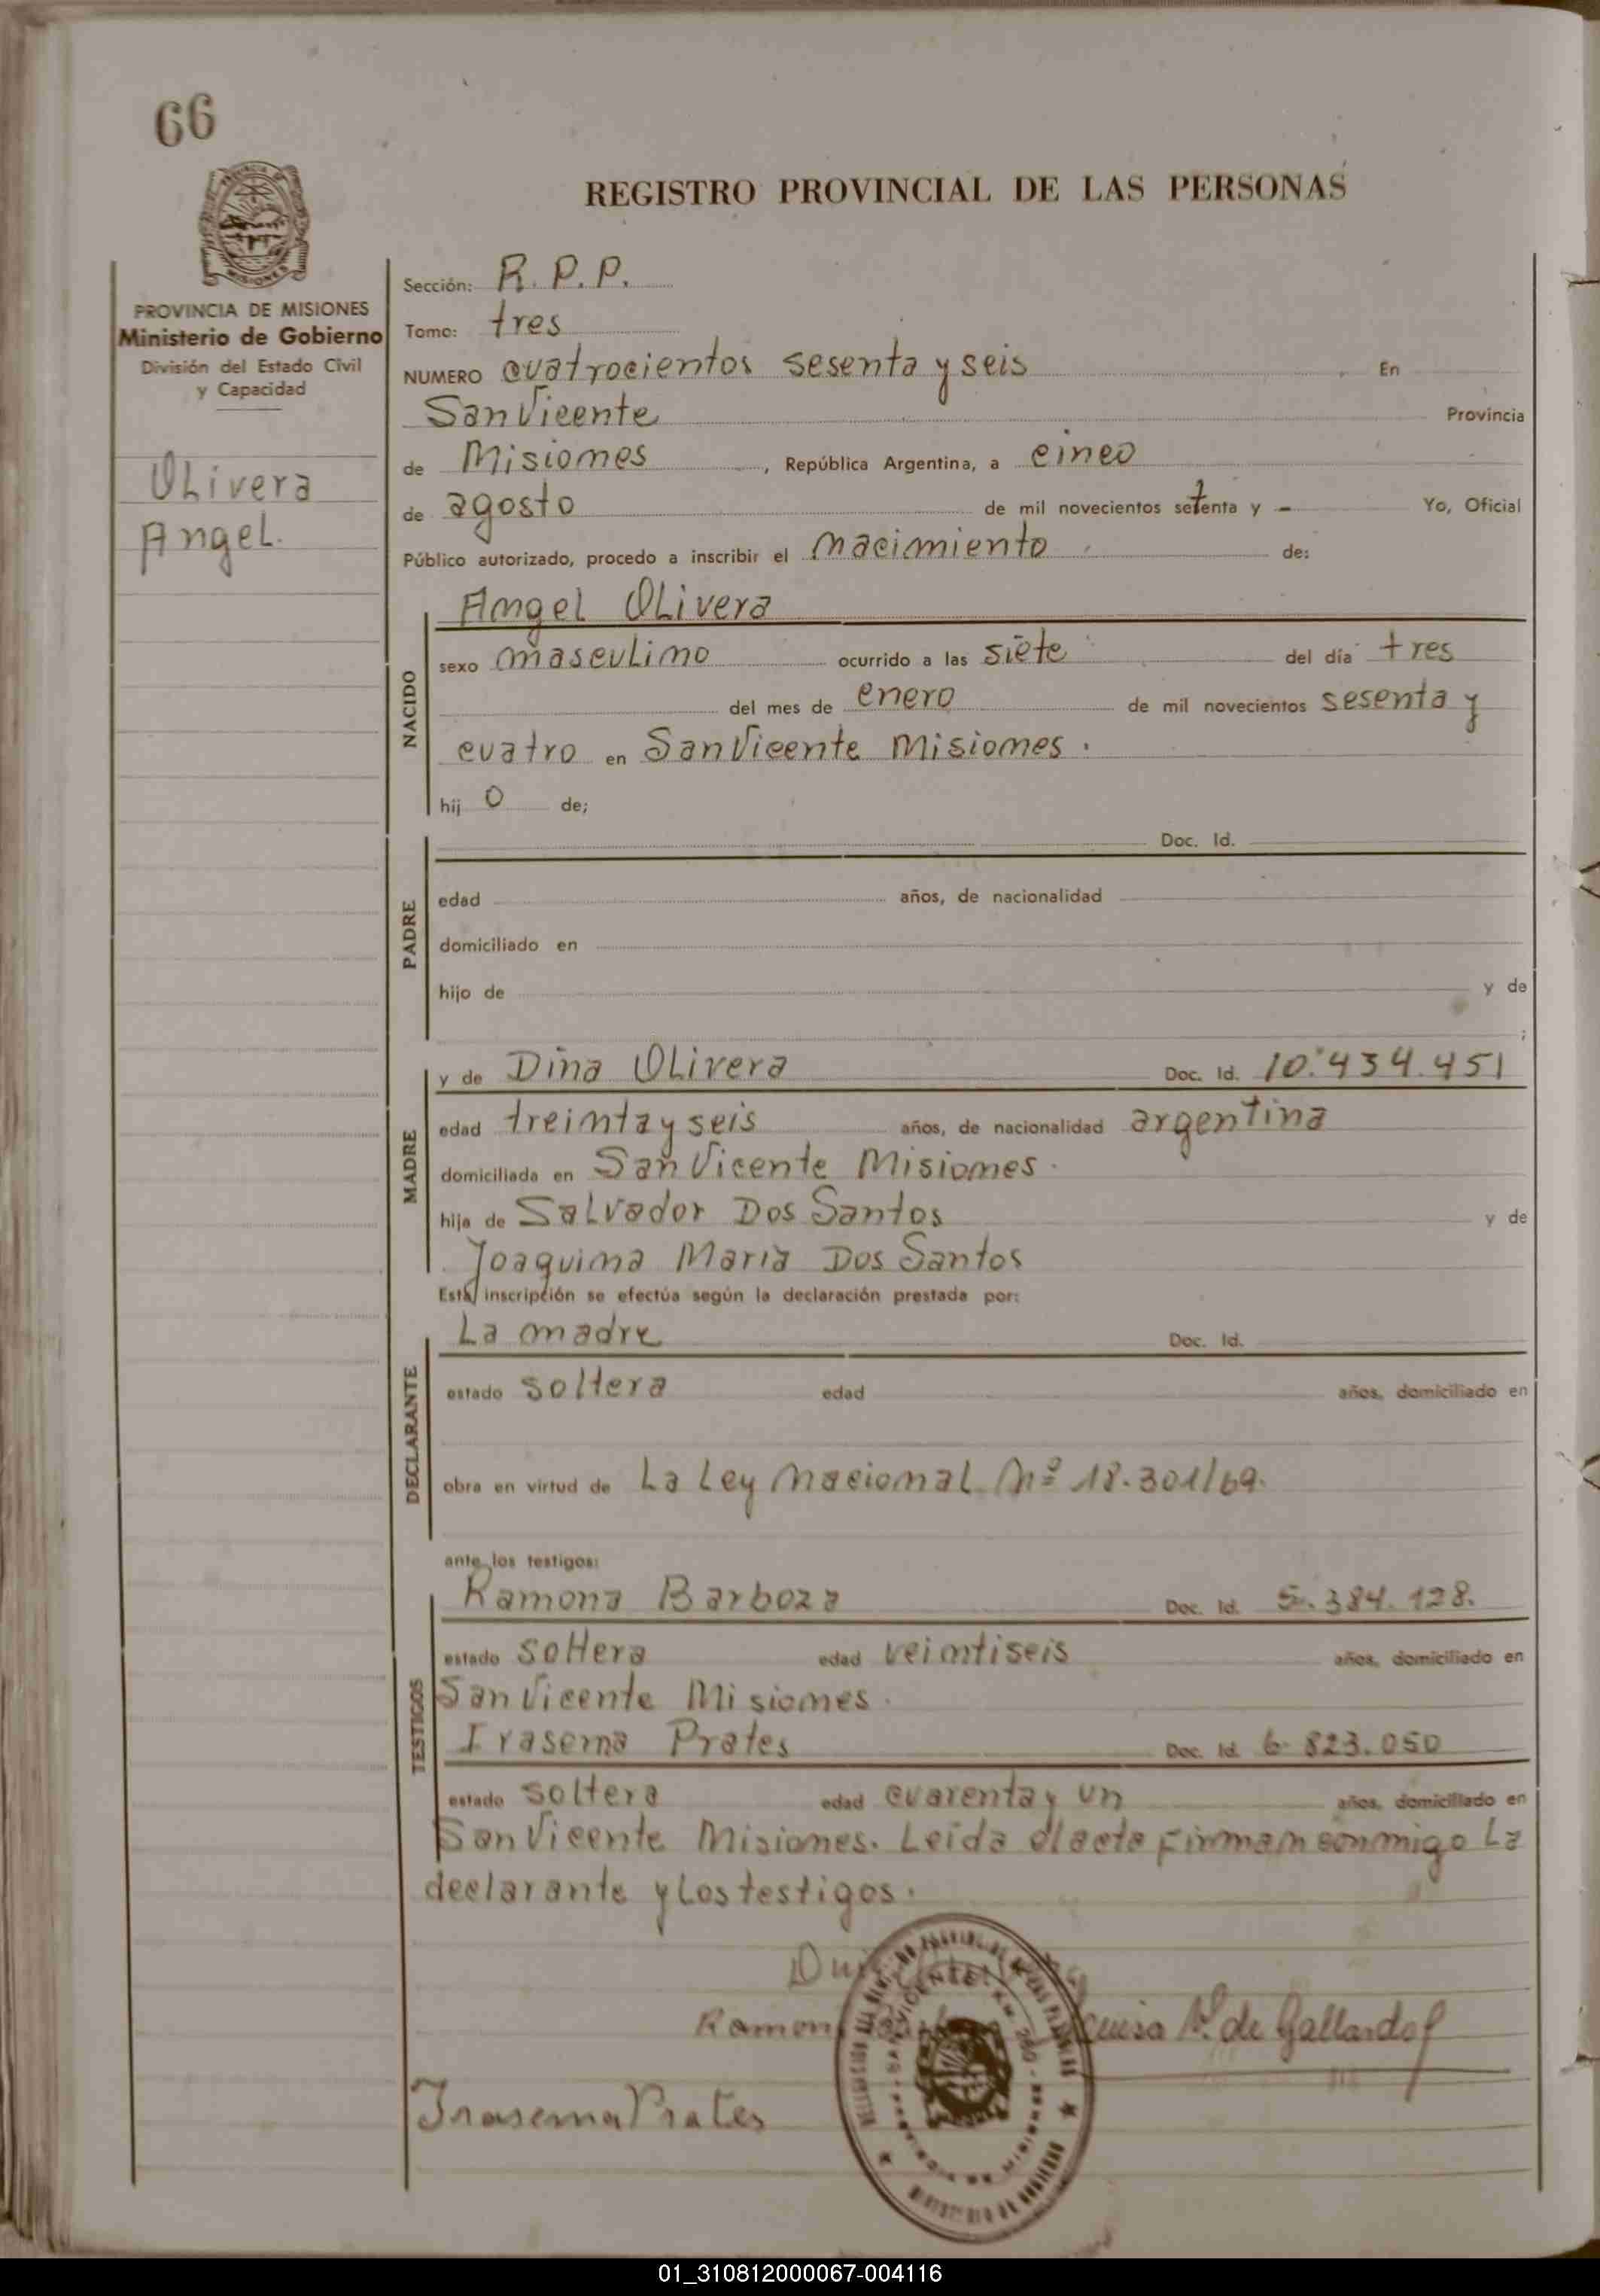 66
REGISTRO PROVINCIAL DE LAS PERSONAS
MISIONES
PROVINCIA DE MISIONES
Ministerio de Gobierno
División del Estado Civil
y Capacidad
Olivera
Angel.
Sección: R. P. P.
Tomo: tres
NUMERO cuatrocientos sesenta y seis En
San Vicente Provincia
de Misiones, República Argentina, a cinco
de agosto de mil novecientos setenta y - Yo, Oficial
Público autorizado, procedo a inscribir el nacimiento de:
Angel Olivera
NACIDO
sexo masculino ocurrido a las siete del día tres
del mes de enero de mil novecientos sesenta y
cuatro en San Vicente Misiones.
hij o de;
PADRE
Doc. Id.
edad años, de nacionalidad
domiciliado en
hijo de y de
;
MADRE
y de Dina Olivera Doc. Id. 10.434.451
edad treinta y seis años, de nacionalidad argentina
domiciliada en San Vicente Misiones.
hija de Salvador Dos Santos y de
Joaquina Maria Dos Santos
Esta inscripción se efectúa según la declaración prestada por:
DECLARANTE
La madre Doc. Id.
estado soltera edad años, domiciliado en
obra en virtud de La Ley Nacional Nº 18.301/69.
ante los testigos:
TESTIGOS
Ramona Barboza Doc. Id. 5.384.128.
estado soltera edad veintiseis años, domiciliado en
San Vicente Misiones.
Irasema Prates Doc. Id. 6.823.050
estado soltera edad cuarenta y un años, domiciliado en
San Vicente Misiones. Leida el acta firman conmigo La
declarante y Los testigos.
de Gallardo
Irasema Prates
SAN VICENTE
MINISTERIO DE GOBIERNO
01_310812000067-004116